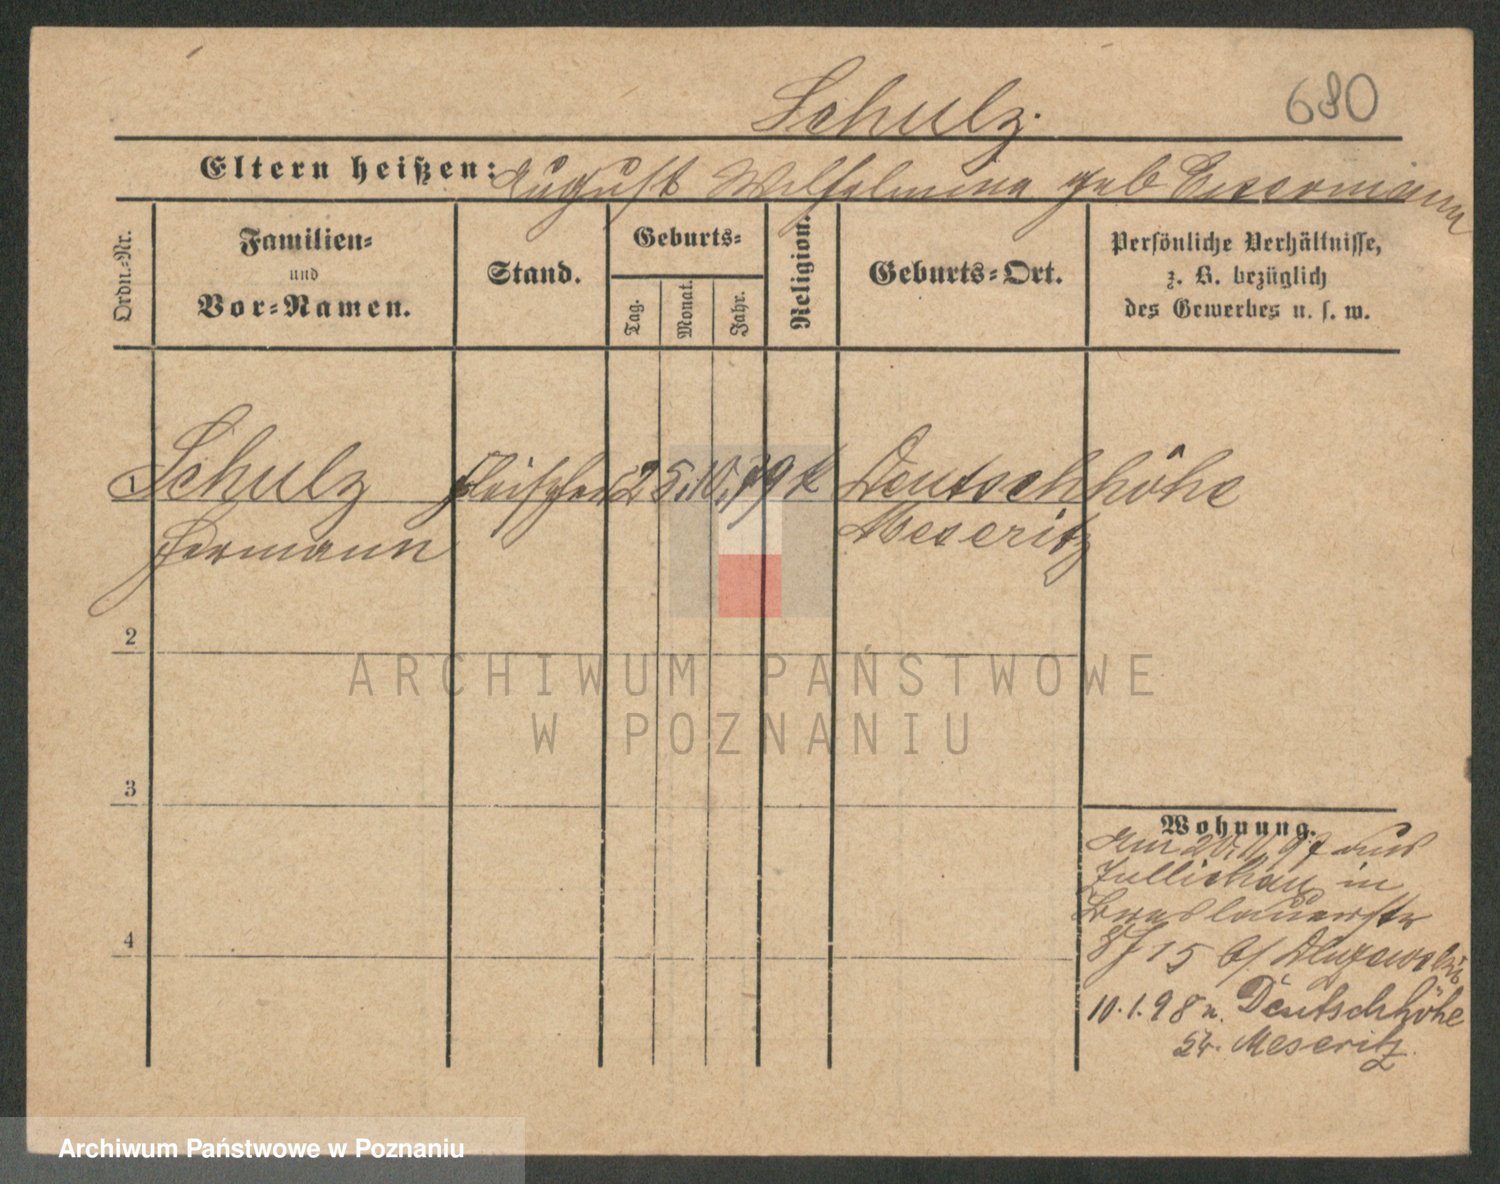 Schulz.
680
Eltern heißen: August Wilhelmina geb
Ordn.-Nr.
Familien-
und
Vor-Namen.
Stand.
Geburts-
Tag.
Monat.
Jahr.
Religion.
Geburts-Ort.
Persönliche Verhältnisse,
z. B. bezüglich
des Gewerbes u. s. w.
1 Schulz Fleischer 25. 10. 79 k Deutschhöhe
Hermann Meseritz
2
3
4
Wohnung.
Am 20. 97 aus
Züllichau in
Breslauerstr
15 b/
10.1.98 n. Deutschhöhe
Kr. Meseritz.
ARCHIWUM PAŃSTWOWE
W POZNANIU
Archiwum Państwowe w Poznaniu